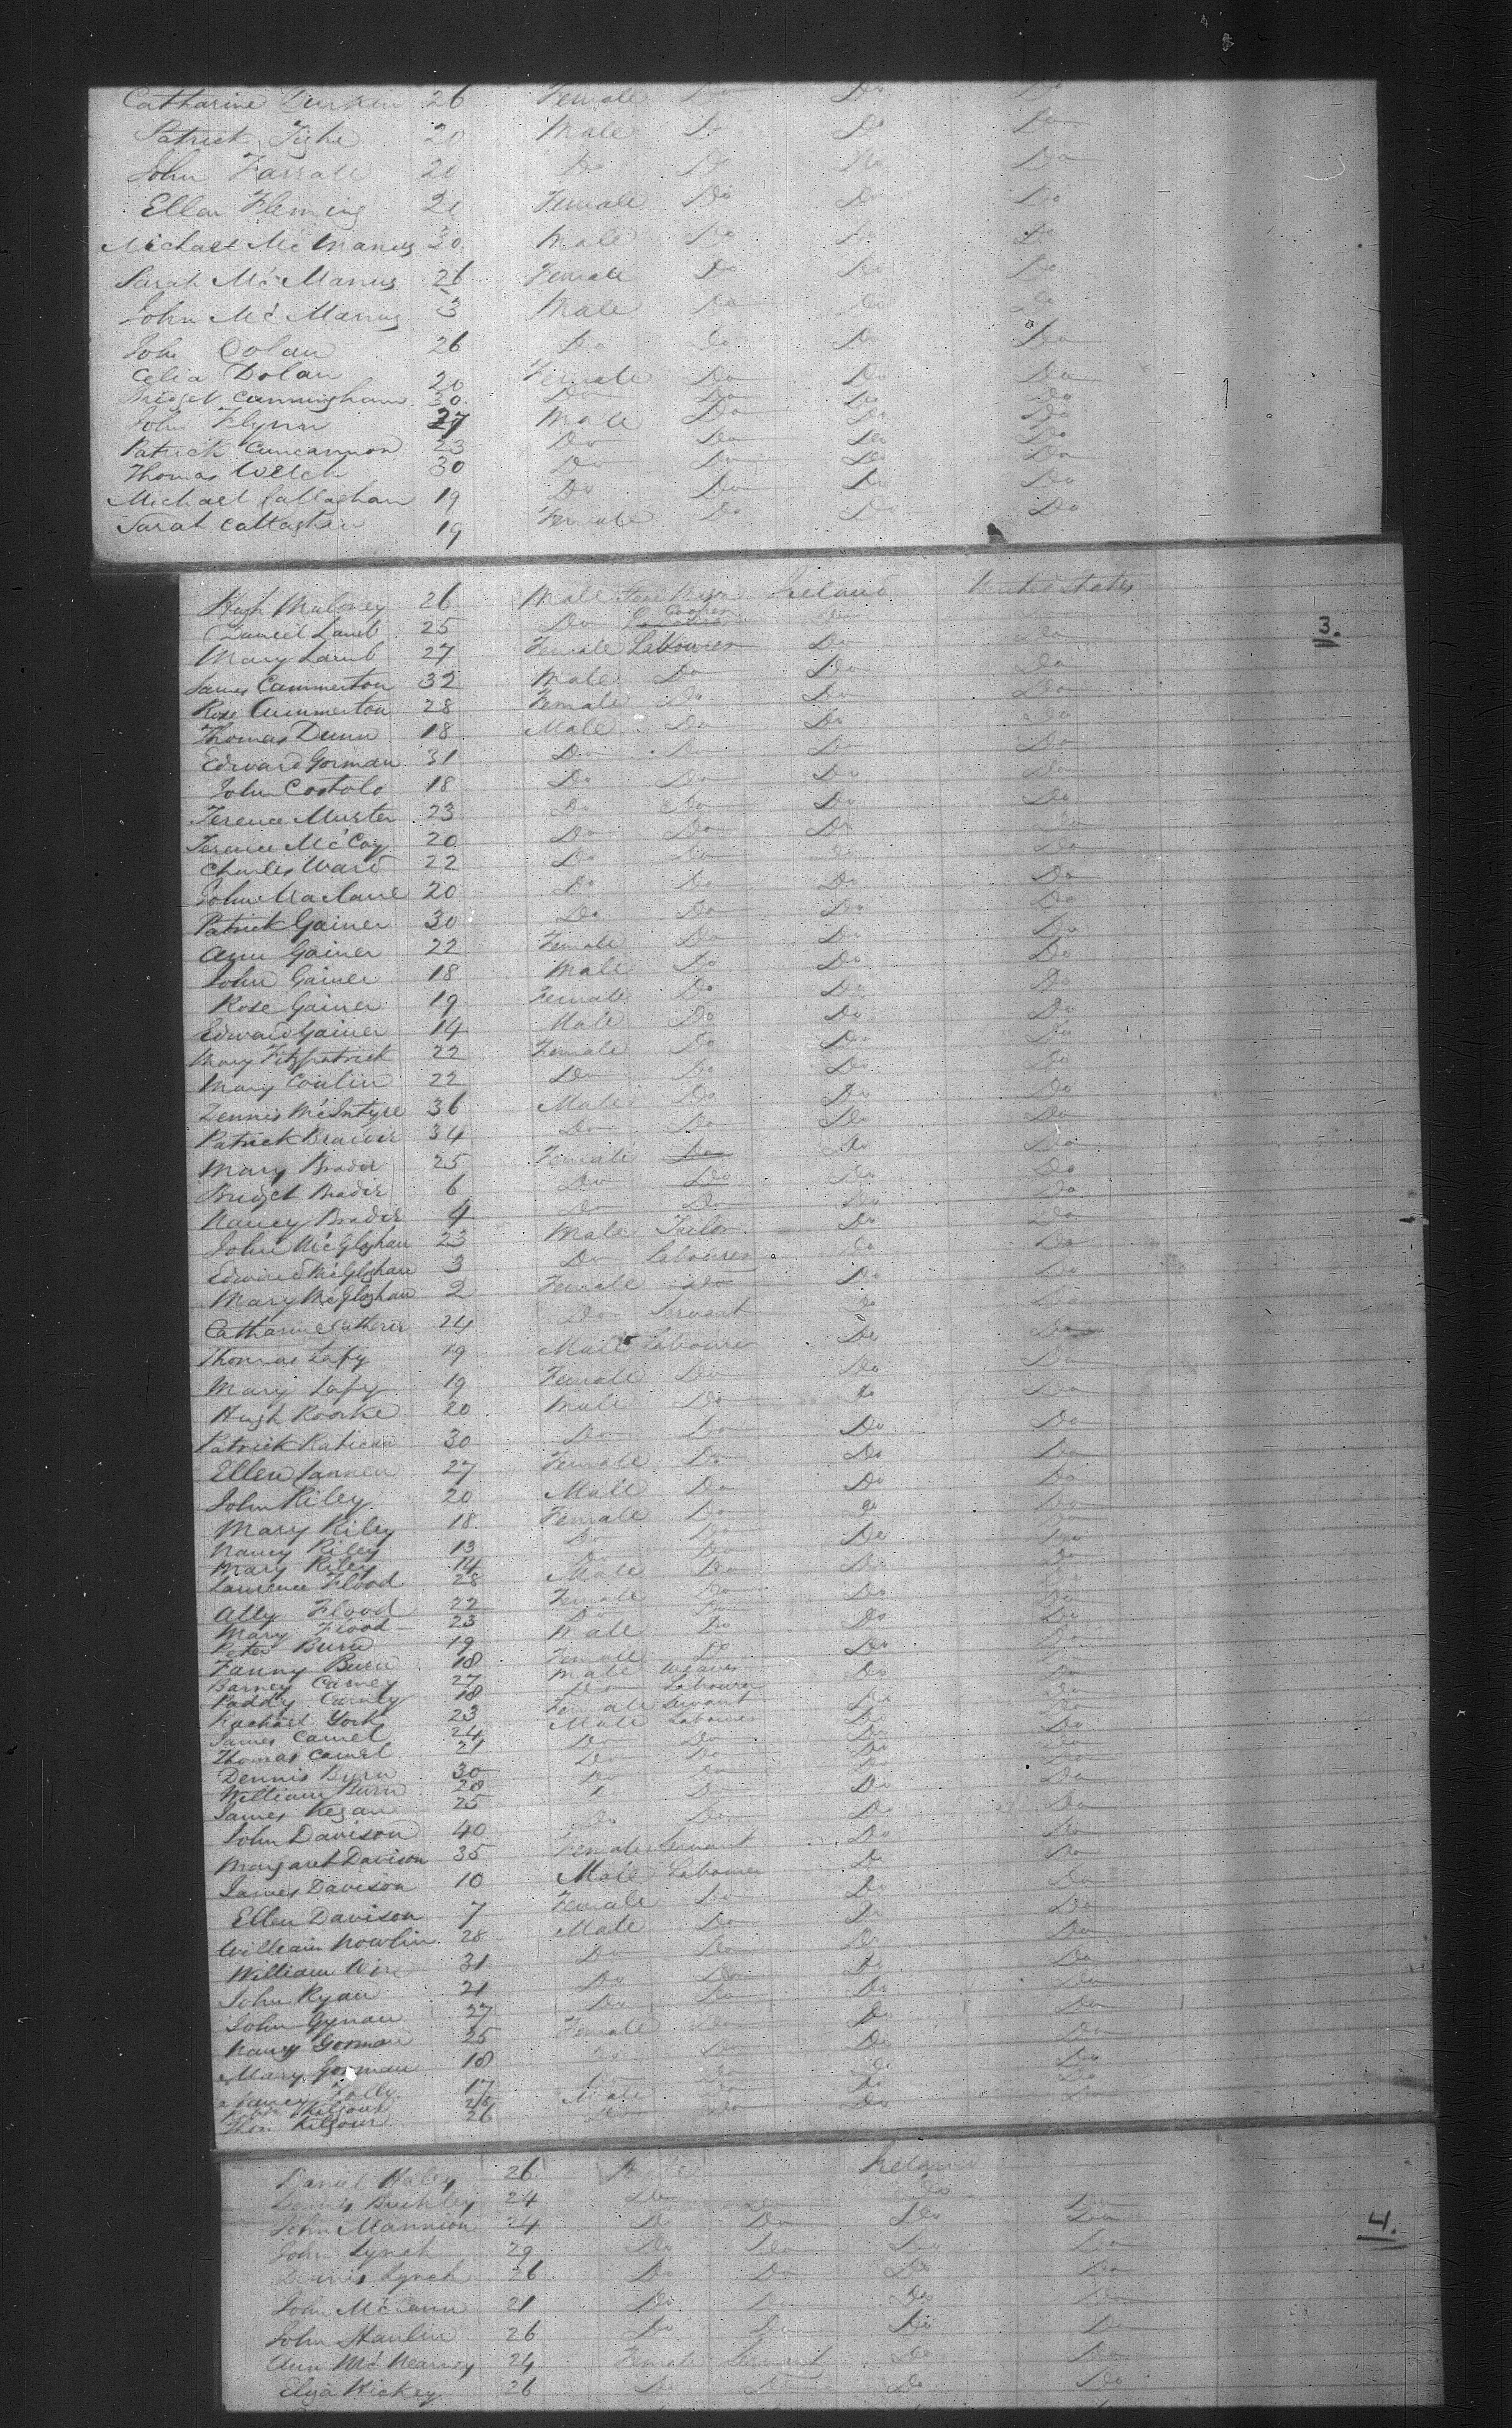 Catharine Durkin 26 Female Do Do Do
Patrick Tighe 20 Male Do Do Do
John Farrall 20 Do Do Do Do
Ellen Fleming 20 Female Do Do Do
Michael McManus 30 Male Do Do Do
Sarah McManus 26 Female Do Do Do
John McManus 3 Male Do Do Do
John Dolan 26 Do Do Do Do
Celia Dolan 20 Female Do Do Do
Bridget Cunningham 30 Do Do Do Do
John Flynn 27 Male Do Do Do
Patrick Cuncannon 23 Do Do Do Do
Thomas Welch 30 Do Do Do Do
Michael Callaghan 19 Do Do Do Do
Sarah Callaghan 19 Female Do Do Do
Hugh Maloney 26 Male Stone Mason Ireland United States
3.
Daniel Lamb 25 Do Cooper Do
Mary Lamb 27 Female Labourer Do Do
James Cammerton 32 Male Do Do Do
Rose Cummerton 28 Female Do Do Do
Thomas Dunn 18 Male Do Do Do
Edward Gorman 31 Do Do Do Do
John Costolo 18 Do Do Do Do
Terence Murster 23 Do Do Do Do
Terence McCoy 20 Do Do Do Do
Charles Ward 22 Do Do Do Do
John 20 Do Do Do Do
Patrick Gainer 30 Do Do Do Do
Ann Gainer 22 Female Do Do Do
John Gainer 18 Male Do Do Do
Rose Gainer 19 Female Do Do Do
Edward Gainer 14 Male Do Do Do
Mary Fitzpatrick 22 Female Do Do Do
Mary Conlin 22 Do Do Do Do
Dennis McIntyre 36 Male Do Do Do
Patrick 34 Do Do Do Do
Mary Brader 25 Female Do Do Do
Bridget Brader 6 Do Do Do Do
Nancy Brader 4 Do Do Do Do
John McGloghan 23 Male Tailor Do Do
Edward McGloghan 3 Do Labourer Do Do
Mary McGloghan 2 Female Do Do Do
Catharine 24 Do Servant Do Do
Thomas Lafy 19 Male Labourer Do Do
Mary Lafy 19 Female Do Do Do
Hugh Roorke 20 Male Do Do Do
Patrick Ratican 30 Do Do Do Do
Ellen Cannen 27 Female Do Do Do
John Riley 20 Male Do Do Do
Mary Riley 18 Female Do Do Do
Nancy Riley 13 Do Do Do Do
Mary Riley 14 Do Do Do Do
Laurence Flood 28 Male Do Do Do
Ally Flood 22 Female Do Do Do
Mary Flood 23 Do Do Do Do
Peter Burn 19 Male Do Do Do
Fanny Burn 18 Female Do Do Do
Barney Carney 27 Male Weaver Do Do
Paddy Carney 18 Do Labourer Do Do
Rachael York 23 Female Servant Do Do
James Carnel 24 Male Labourer Do Do
Thomas Carnel 21 Do Do Do Do
Dennis Burn 30 Do Do Do Do
William Burn 20 Do Do Do Do
James Kegan 25 Do Do Do Do
John Davison 40 Do Do Do Do
Margaret Davison 35 Female Servant Do Do
James Davison 10 Male Labourer Do Do
Ellen Davison 7 Female Do Do Do
William Nowlin 28 Male Do Do Do
William Wire 31 Do Do Do Do
John Ryan 21 Do Do Do Do
John Gynau 27 Do Do Do Do
Nancy Gorman 25 Female Do Do Do
Mary Gorman 18 Do Do Do Do
Nancy Folly 17 Do Do Do Do
Kilgour 26 Male Do Do Do
Thos Kilgour 26 Do Do Do Do
Daniel Haley 26 Male Ireland
Dennis Buckley 24 Do Do Do Do
John Mannion 24 Do Do Do Do
4.
John Lynch 29 Do Do Do Do
Dennis Lynch 26 Do Do Do Do
John McCann 21 Do Do Do Do
John Hanlin 26 Do Do Do Do
Ann McNearney 24 Female Servant Do Do
Eliza Hickey 26 Do Do Do Do